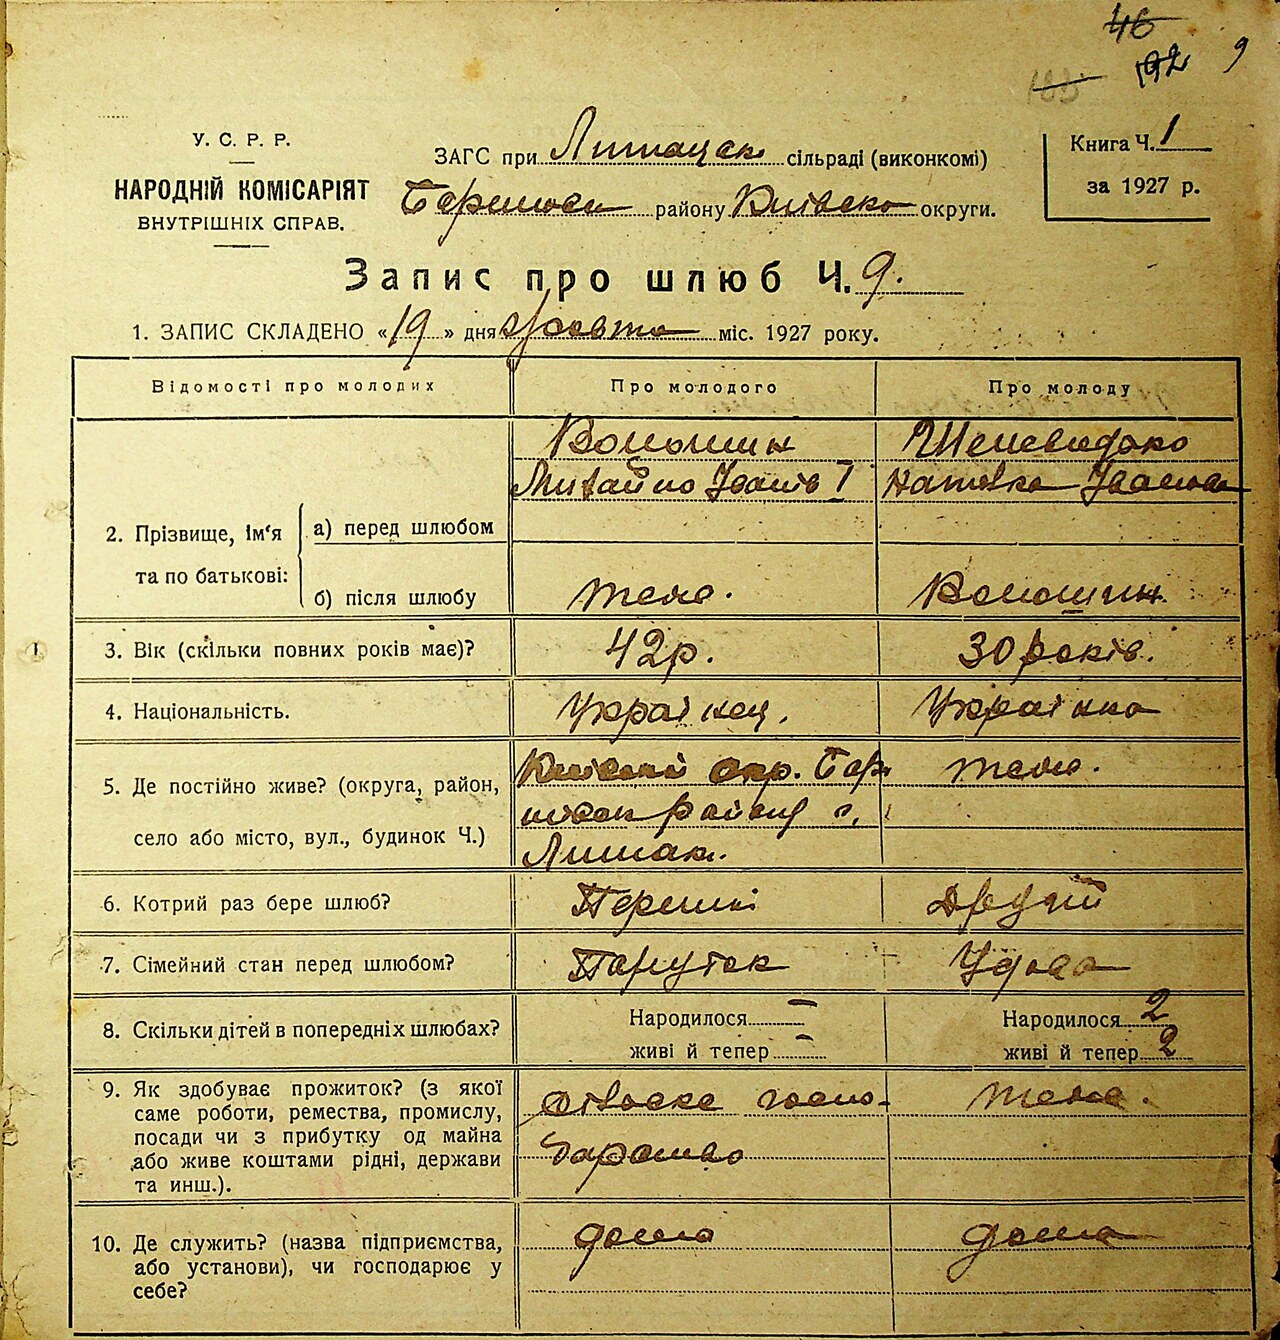 46
192 9
У. С. Р. Р.
НАРОДНІЙ КОМІСАРІЯТ
ВНУТРІШНІХ СПРАВ.
ЗАГС при сільраді (виконкомі)
району Київсько округи.
Книга Ч. 1
за 1927 р.
Запис про шлюб Ч. 9.
1. ЗАПИС СКЛАДЕНО «19» дня Жовтня міс. 1927 року.
Відомості про молодих
Про молодого
Про молоду
2. Прізвище, ім'я та по батькові:
а) перед шлюбом
Волошин
Михайло Іванів
Шелевидько
Наталка Іванова
б) після шлюбу
теж.
Волошин
3. Вік (скільки повних років має)?
42р.
30 років.
4. Національність.
Українец.
Українка
5. Де постійно живе? (округа, район,
село або місто, вул., будинок Ч.)
Київської окр. Бар
району с.
теж.
6. Котрий раз бере шлюб?
Перший
Другий
7. Сімейний стан перед шлюбом?
Парубок
Удова
8. Скільки дітей в попередніх шлюбах?
Народилося –
живі й тепер –
Народилося 2
живі й тепер 2
9. Як здобуває прожиток? (з якої
саме роботи, ремества, промислу,
посади чи з прибутку од майна
або живе коштами рідні, держави
та инш.).
сільське госпо-
дарство
теж.
10. Де служить? (назва підприємства,
або установи), чи господарює у
себе?
дома
дома